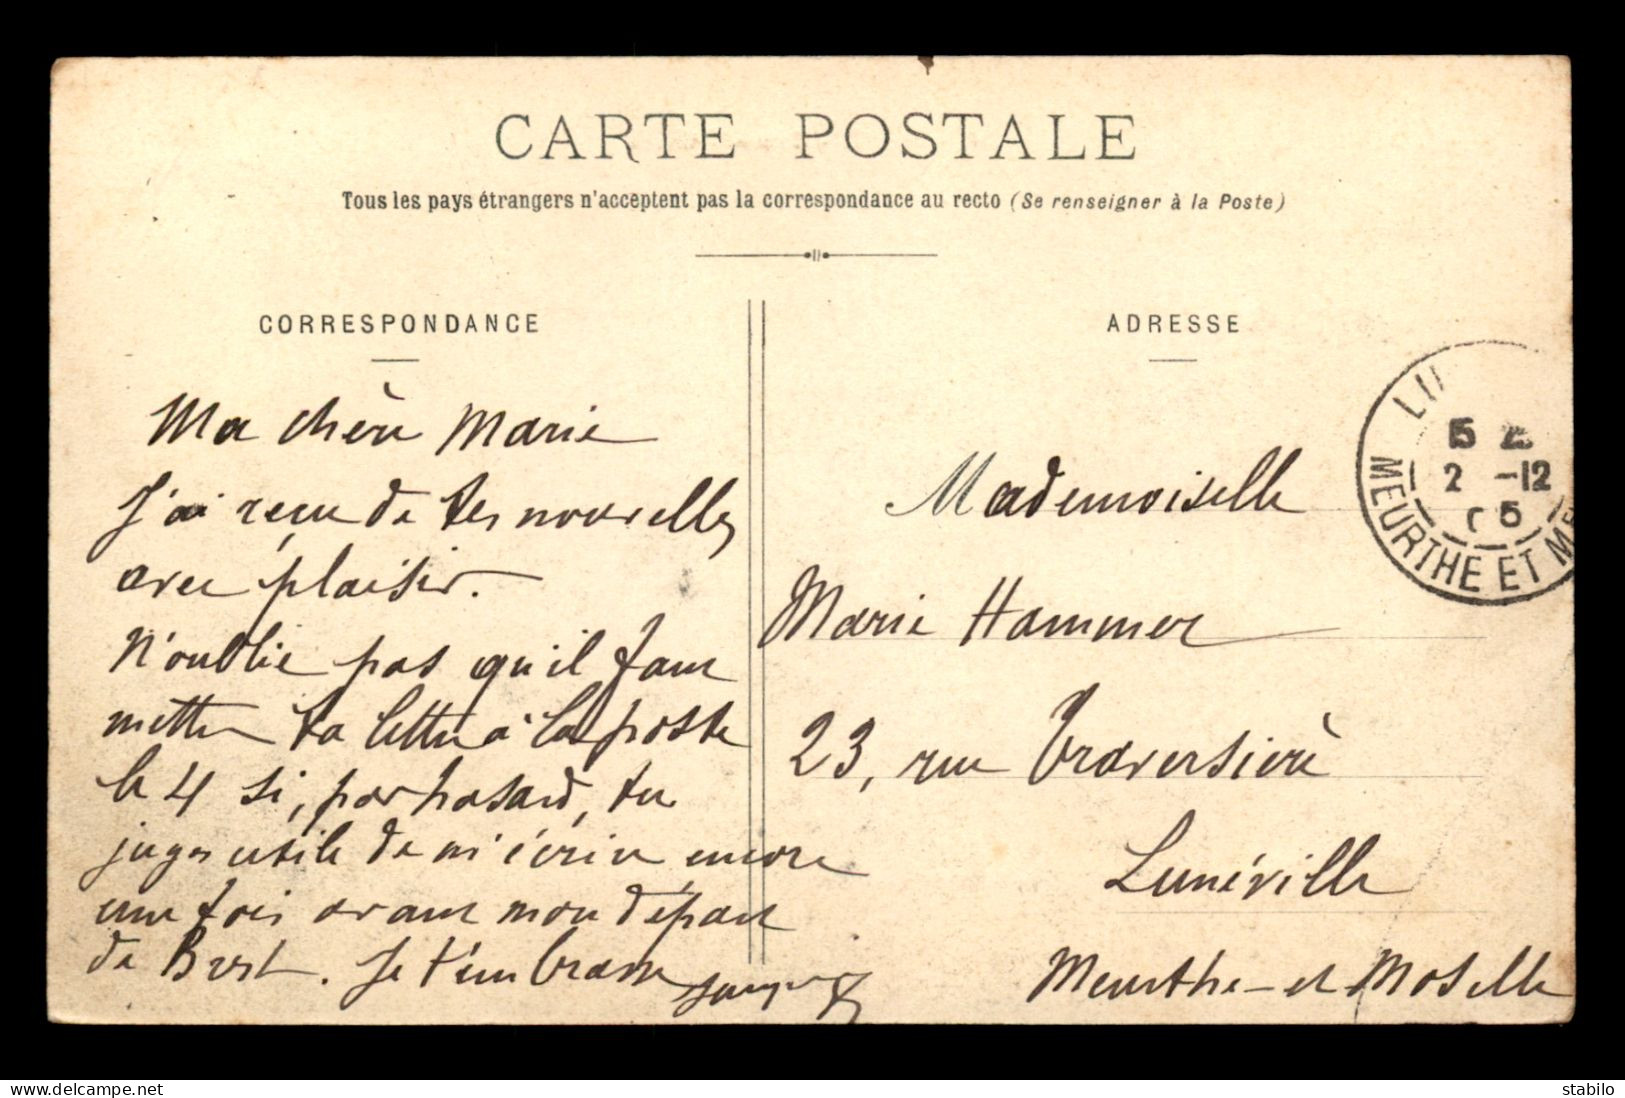 CARTE POSTALE
Tous les pays étrangers n'acceptent pas la correspondance au recto (Se renseigner à la Poste)
CORRESPONDANCE
Ma chère Marie
J'ai reçu de tes nouvelles
avec plaisir.
N'oublie pas qu'il faut
mettre ta lettre à la poste
le 4 si, par hasard, tu
juges utile de m'écrire encore
une fois avant mon départ
de Brest. Je t'embrasse
ADRESSE
Mademoiselle
Marie Hammer
23, rue Traversière
Lunéville
Meurthe-et-Moselle
2 -12
5
MEURTHE ET M
delcampe.net
stabilo